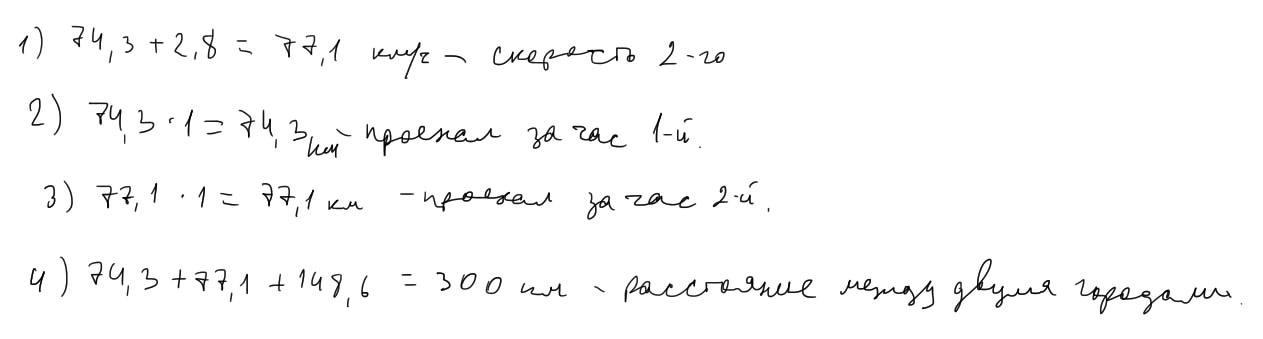 1) 74,3 + 2,8 = 77,1 км/ч - скорость 2-го
2) 74,3 · 1 = 74,3 км - проехал за час 1-й.
3) 77,1 · 1 = 77,1 км - проехал за час 2-й.
4) 74,3 + 77,1 + 148,6 = 300 км - расстояние между двумя городами.